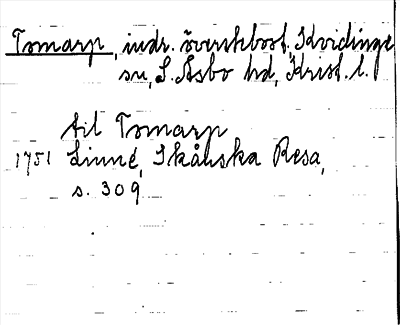 Tomarp, indr. överstebost. Kvidinge
sn, S. Åsbo hd, Krist. l.
till Tomarp
1751 Linné, Skånska Resa,
s. 309